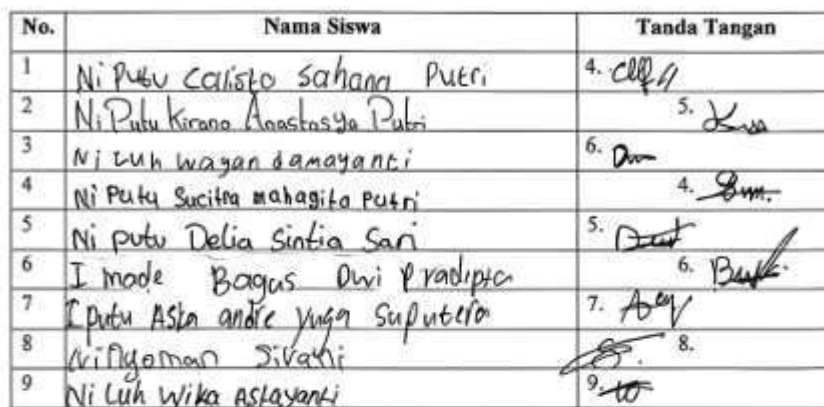 No. Nama Siswa Tanda Tangan
1 Ni Putu Calisto Sahana Putri 4.
2 Ni Putu Kirana Anastasya Putri 5.
3 Ni Luh Wayan damayanti 6.
4 Ni Putu Sucitra mahagita putri 4.
5 Ni putu Delia Sintia Sari 5.
6 I made Bagus Dwi Pradipta 6.
7 I putu Asta andre yuga Suputera 7.
8 Ni Nyoman Sivani 8.
9 Ni Luh Wika Astayanti 9.